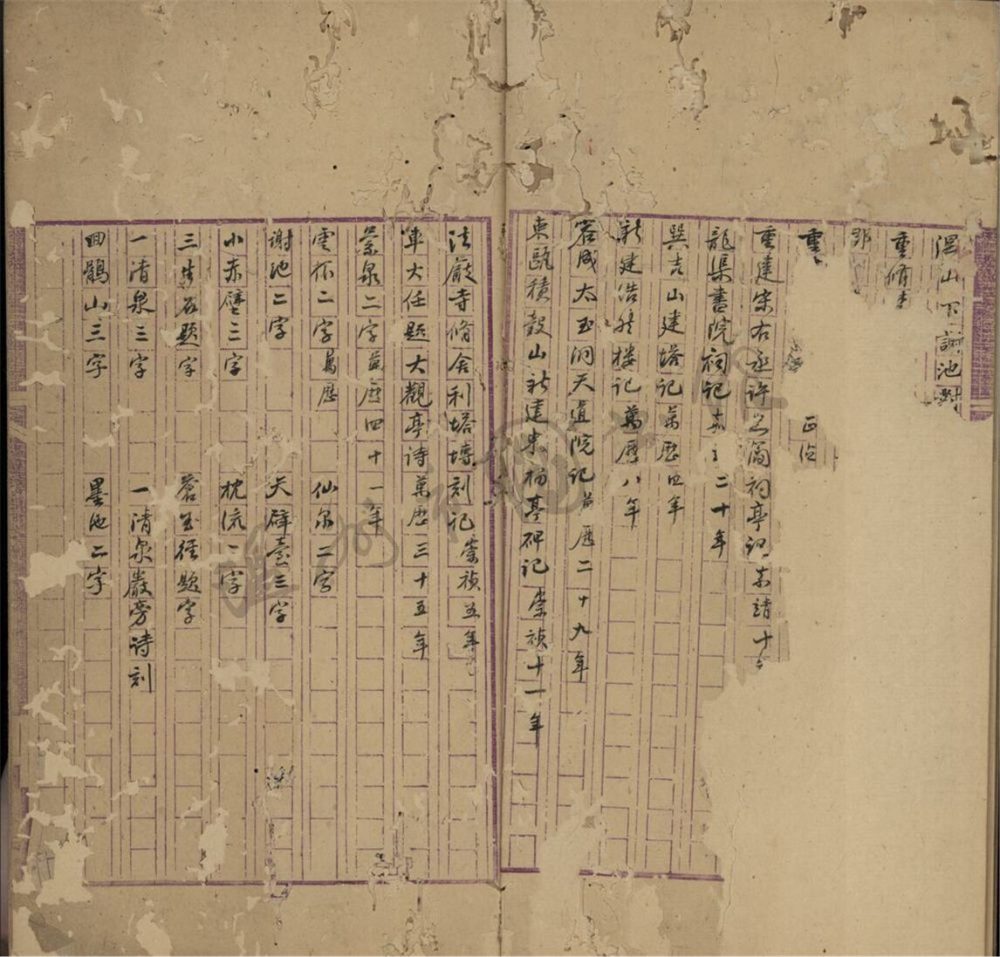 温山下謝池
重脩
郡
重 正德
重建宋右丞許公篤祠亭記 嘉靖十
龍渠書院祠記 嘉 二十年
巽吉山建塔記 萬歷四年
新建浩然樓記 萬歷八年
容成太玉洞天道院記 萬歷二十九年
東甌積穀山新建東楊亭碑記 崇禎十一年
法嚴寺脩舍利塔塼刻記 崇禎五年
車大任題大觀亭詩 萬歷三十五年
蒙泉二字 萬歷四十一年
雲根二字 萬歷 仙泉二字
謝池二字 天辟臺三字
小赤壁三字 枕流二字
三生石題字 蒼玉徑題字
一清泉三字 一清泉嚴旁诗刻
回鶴山三字 墨池二字